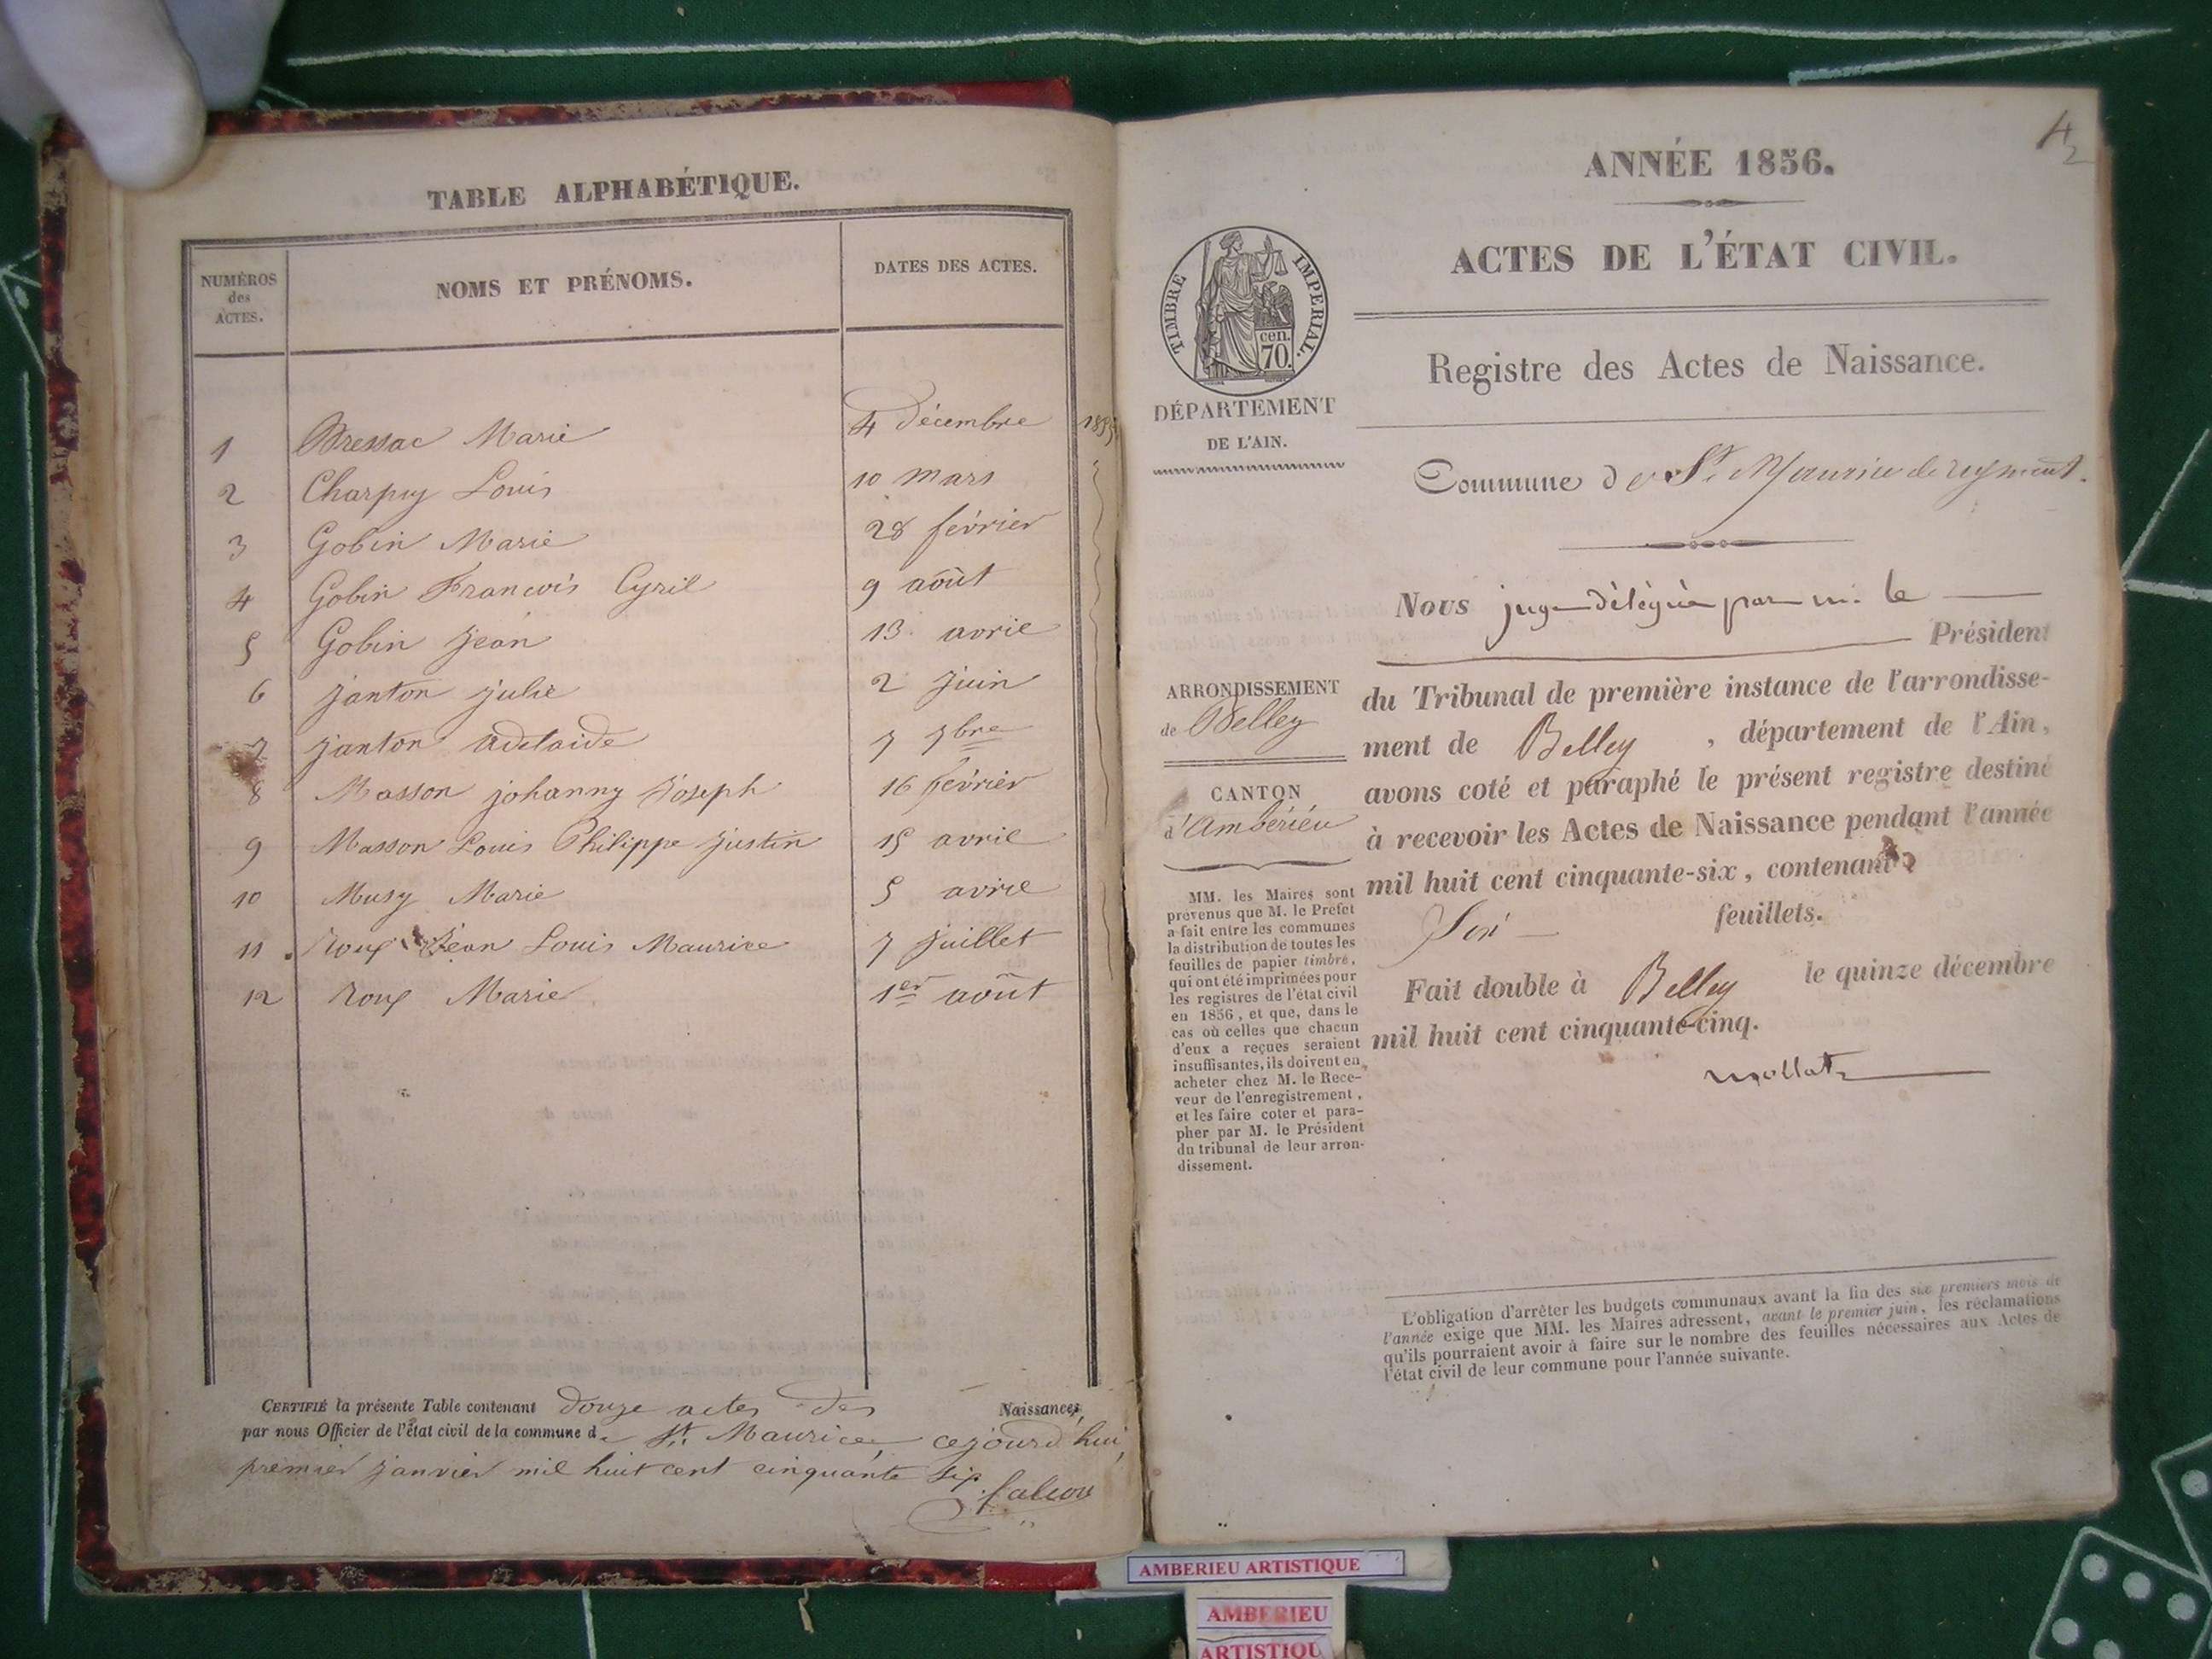 TABLE ALPHABÉTIQUE.
NUMÉROS des ACTES. NOMS ET PRÉNOMS. DATES DES ACTES.
1 Bressac Marie 4 décembre 1855
2 Charpuy Louis 10 mars
3 Gobin Marie 28 février
4 Gobin François Cyril 9 août
5 Gobin Jean 13 avril
6 Janton Julie 2 juin
7 Janton Adelaide 7 7bre
8 Masson Johanny Joseph 16 février
9 Masson Louis Philippe Justin 15 avril
10 Musy Marie 5 avril
11 Roux Jean Louis Maurice 7 juillet
12 Roux Marie 1er août
CERTIFIÉ la présente Table contenant douze actes des Naissances,
par nous Officier de l'état civil de la commune de St. Maurice, cejourd'hui,
premier janvier mil huit cent cinquante six
falcon
ANNÉE 1856.
ACTES DE L'ÉTAT CIVIL.
TIMBRE IMPERIAL.
cen.
70.
DÉPARTEMENT
DE L'AIN.
Registre des Actes de Naissance.
Commune de St. Maurice de
Nous juge délégué par m. le
Président
du Tribunal de première instance de l'arrondisse-
ment de Belley, département de l'Ain,
avons coté et paraphé le présent registre destiné
à recevoir les Actes de Naissance pendant l'année
mil huit cent cinquante-six, contenant
feuillets.
Fait double à Belley le quinze décembre
mil huit cent cinquante-cinq.
ARRONDISSEMENT
de Belley
CANTON
d'Ambérieu
MM. les Maires sont
prévenus que M. le Préfet
a fait entre les communes
la distribution de toutes les
feuilles de papier timbré,
qui ont été imprimées pour
les registres de l'état civil
en 1856, et que, dans le
cas où celles que chacun
d'eux a reçues seraient
insuffisantes, ils doivent en
acheter chez M. le Rece-
veur de l'enregistrement,
et les faire coter et para-
pher par M. le Président
du tribunal de leur arron-
dissement.
L'obligation d'arrêter les budgets communaux avant la fin des six premiers mois de
l'année exige que MM. les Maires adressent, avant le premier juin, les réclamations
qu'ils pourraient avoir à faire sur le nombre des feuilles nécessaires aux Actes de
l'état civil de leur commune pour l'année suivante.
AMBERIEU ARTISTIQUE
AMBERIEU
ARTISTIQU